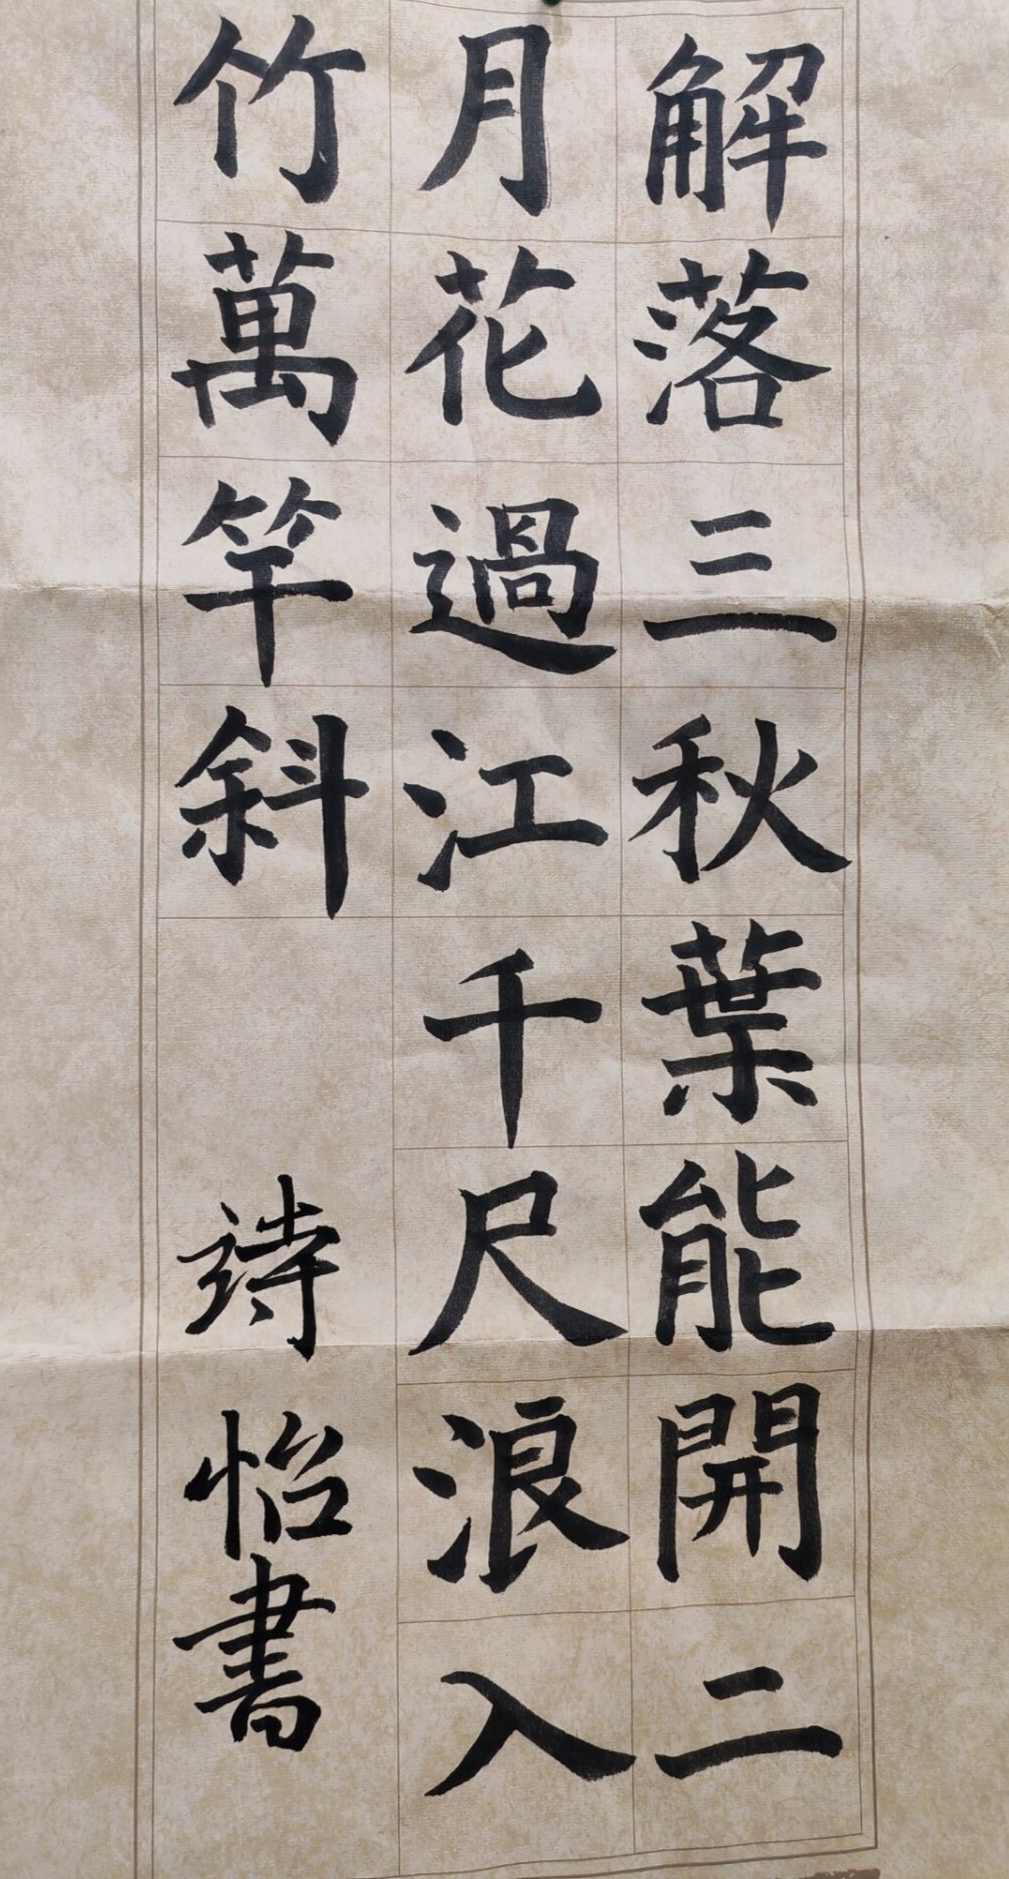 解落三秋葉能開二
月花過江千尺浪入
竹萬竿斜
詩怡書